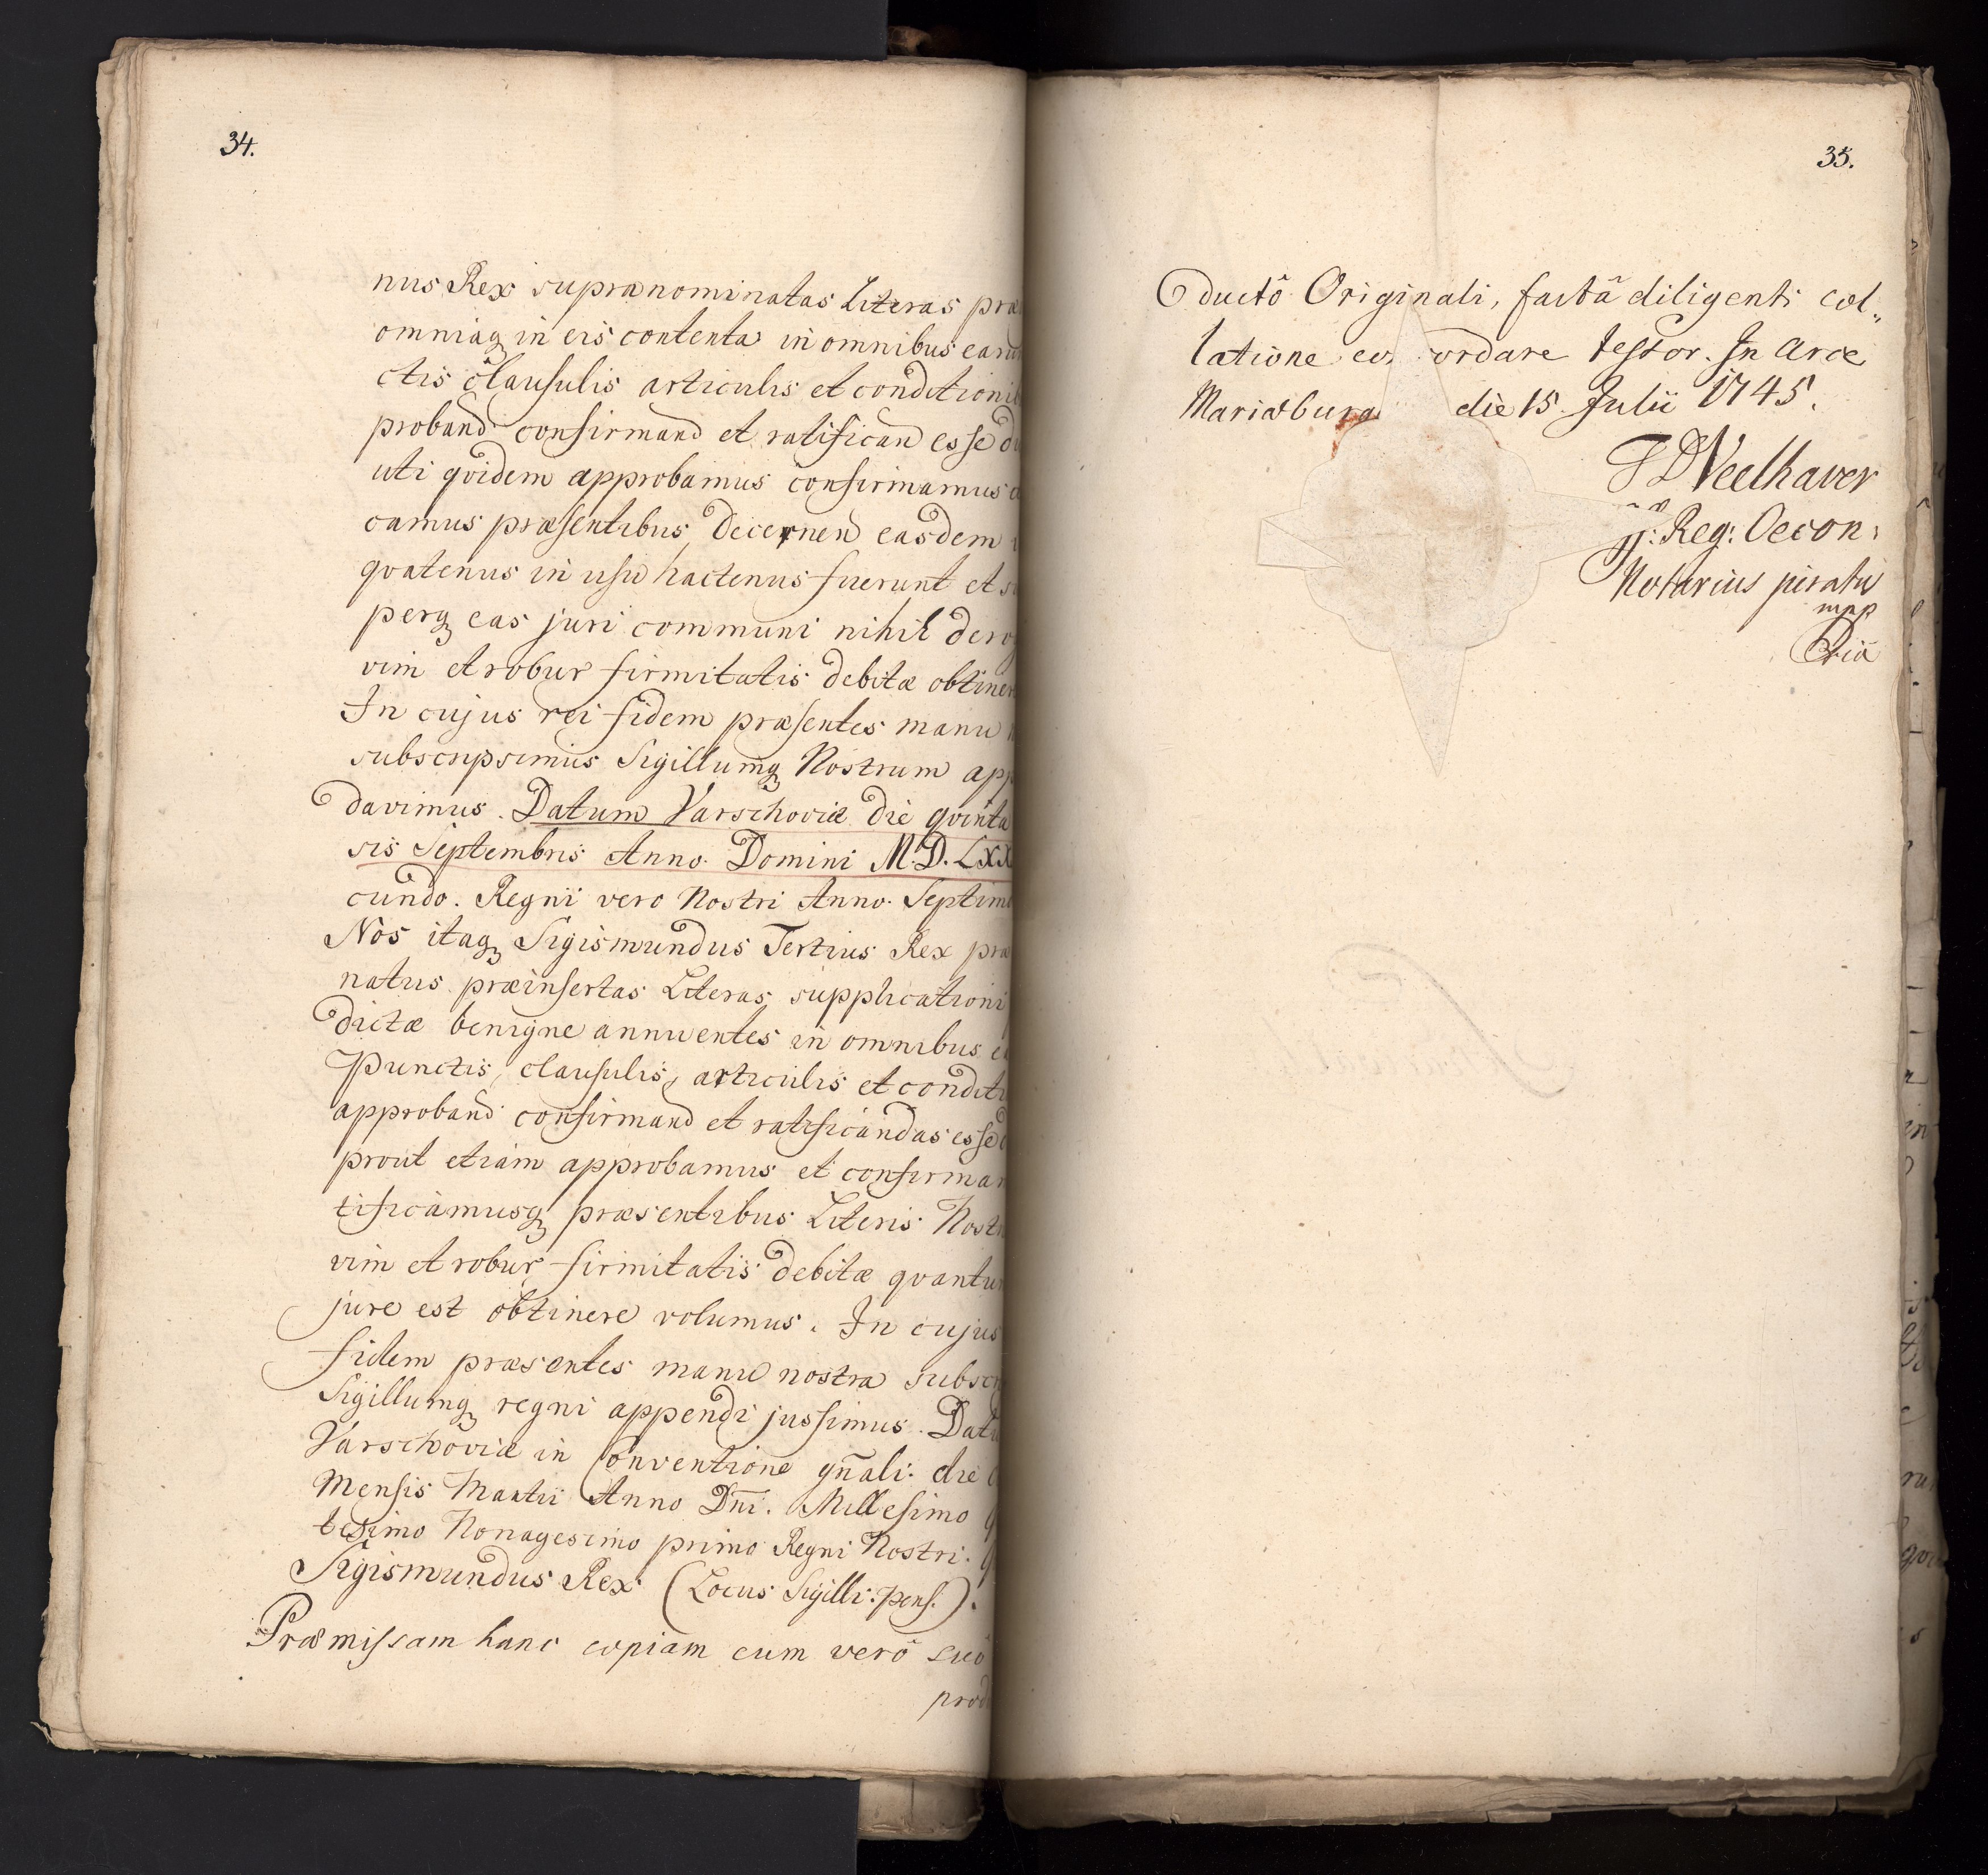 34.
nus Rex supranominatas Literas præ
omniaq in eis contenta in omnibus earun
ctis clausulis articulis et conditionib
proband confirmand et ratifican esse du
uti qvidem approbamus confirmamus
camus præsentibus, decernen easdem
qvatenus in usu hactenus fuerunt et su
perq eas juri communi nihil derog
vim et robur firmitatis debitæ obtiner
In cujus rei fidem præsentes manu n
subscripsimus Sigillumq Nostrum app
davimus. Datum Varschoviæ die qvinta
sis Septembris Anno Domini M.D.LXX
cundo. Regni vero Nostri Anno Septim
Nos itaq Sigismundus Tertius Rex præ
natus præinsertas Literas supplicationi
dictæ benigne annuentes in omnibus e
Punctis, clausulis, articulis et conditi
approband confirmand et ratificandas esse
prout etiam approbamus et confirmam
tificamusq præsentibus Literis Nostr
vim et robur firmitatis debitæ qvantum
jure est obtinere volumus. In cujus
fidem præsentes manu nostra subscr
Sigillumq regni appendi jussimus. Datu
Varschoviæ in Conventione gñali: die
Mensis Martii Anno Dñi. Millesimo q
tesimo Nonagesimo primo Regni Nostri. q
Sigismundus Rex (Locus Sigilli: pens.).
Præmissam hanc copiam cum verô suô
prod
35.
ductô Originali, factâ diligenti col„
latione co ordare testor. In Arce
Mariæburg die 15 Julii 1745.
Neelhaver
Reg: Oecon:
Notarius juratus
mpp